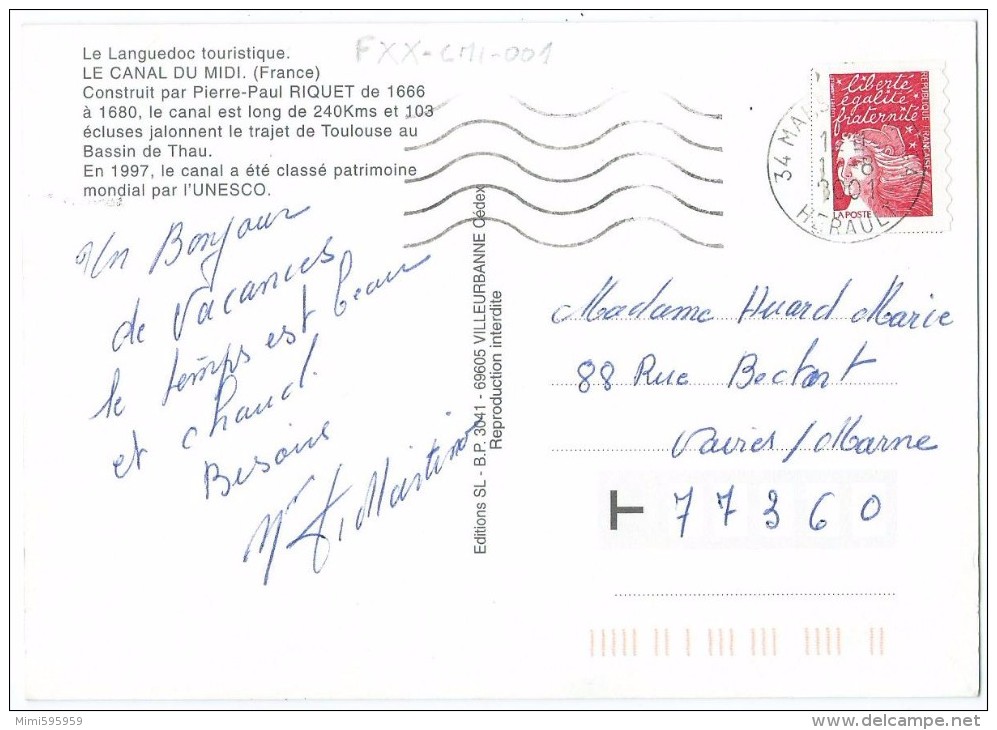 FXX-CMI-001
Le Languedoc touristique.
LE CANAL DU MIDI. (France)
Construit par Pierre-Paul RIQUET de 1666
à 1680, le canal est long de 240Kms et 103
écluses jalonnent le trajet de Toulouse au
Bassin de Thau.
En 1997, le canal a été classé patrimoine
mondial par l'UNESCO.
Un Bonjour
de Vacances
le temps est beau
et chaud.
Bisous
Martinos
Editions SL - B.P. 3041 - 69605 VILLEURBANNE Cédex
Reproduction interdite
liberté
égalité
fraternité
REPUBLIQUE FRANÇAISE
LA POSTE
34
2001
HERAULT
Madame Huard Marie
88 Rue
Vaires/Marne
T 77360
Mimi595959
www.delcampe.net